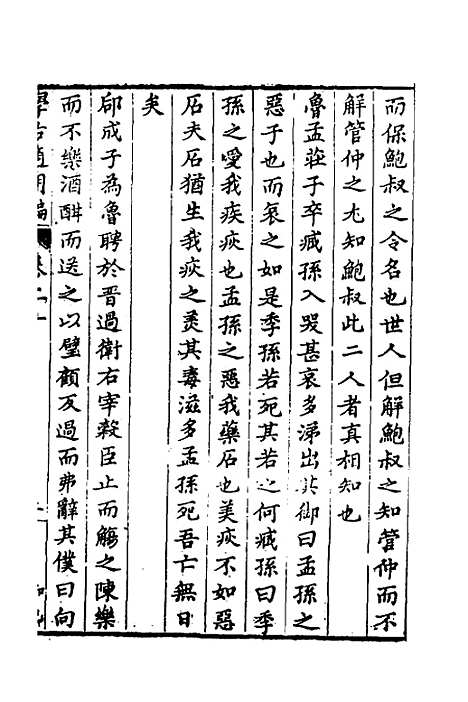 而保鮑叔之令名也世人但解鮑叔之知管仲而不
解管仲之尤知鮑叔此二人者真相知也
魯孟莊子卒臧孫入哭甚哀多涕出其御曰孟孫之
惡子也而哀之如是季孫若死其若之何臧孫曰季
孫之愛我疾疢也孟孫之惡我藥石也美疢不如惡
石夫石猶生我疢之美其毒滋多孟孫死吾亡無日
矣
郈成子為魯聘於晉過衛右宰穀臣止而觴之陳樂
而不樂酒酣而送之以璧顧反過而弗辭其僕曰向
學古適用編
卷二十